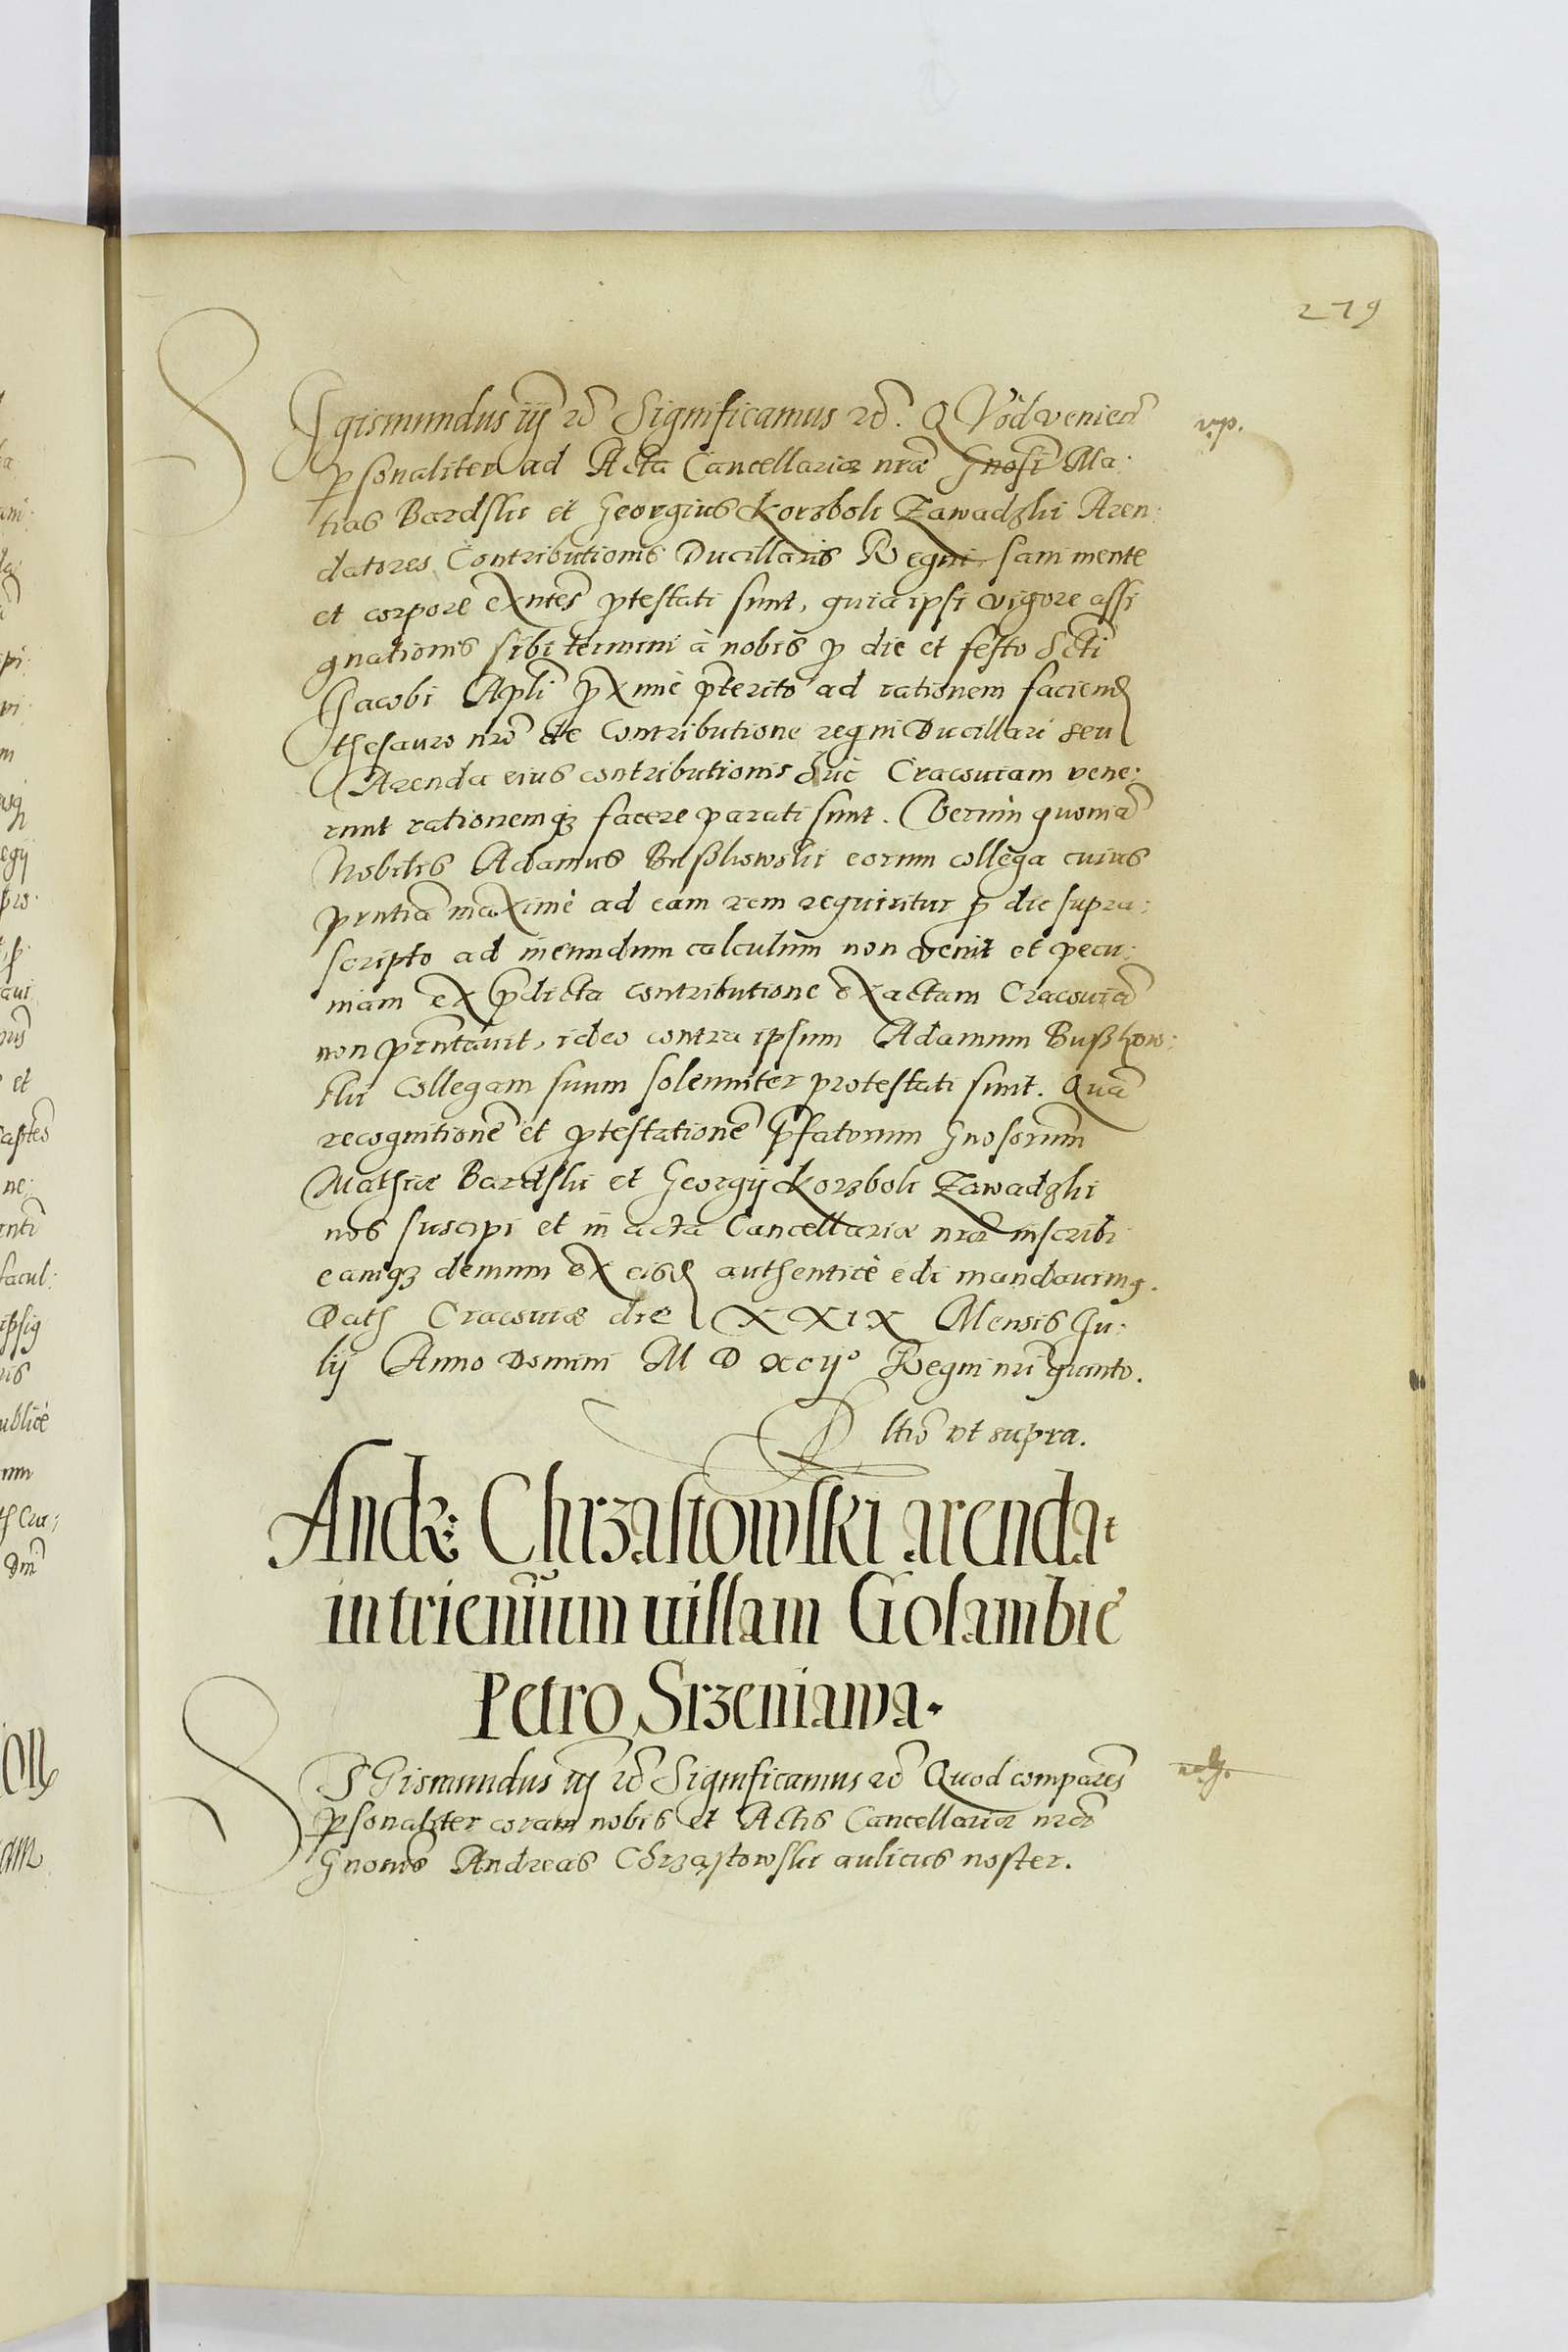 279
Sigismundus iij etc̃ Significamus etc̃. Quod venien̄
p̱sonaliter ad Acta Cancellariæ nr̃æ Gnosi Ma:
tias Bardski et Georgius Korzbok Zawadzki Aren:
datores Contributionis Ducillaris Regni sani mente
et corpore exñtes p̱testati sunt, quia ipsi vigore assi
gnationis sibi termini à nobis p̱ die et festo Scti
Jacobi Apli p̱ximè p̃terito ad rationem faciend
thesauro nrõ de Contributione regni Ducillari seu
Arenda eius contributionis huc Cracoviam vene:
runt rationemq̃ facere parati sunt. Verùm quoniã
Nobilis Adamus Bußkowski eorum collega cuius
pñtia maximè ad eam rem requiritur p̱ die supra:
scripto ad ineundum calculum non venit et pecu:
niam ex p̃dicta contributione exactam Cracoviã
non p̃ntavit, ideo contra ipsum Adamum Bußkow:
ski Collegam suum solenniter protestati sunt. Quã
recognitionẽ et p̱testationẽ p̃fatorum Gnosorum
Mathiæ Bardski et Georgij Korzbok Zawadzki
nos suscipi et in acta Cancellariæ nræ inscribi
eamq̃ demum ex eisd authenticè edi mandavimꝰ.
Dath Cracoviæ die XXIX Mensis Ju:
lij Anno Domini M D XCIJ° Regni nri quinto.
Rltio vt supra.
Andr: Chrzastowski arenda:
in trienium uillam Golambie
Petro Srzeniawa.
SIGismundus iij etc̃ Significamus etc̃ Quod comparẽs
p̱sonaliter coram nobis et Actis Cancellariæ nræ
Gnosus Andreas Chrząstowski aulicus noster.